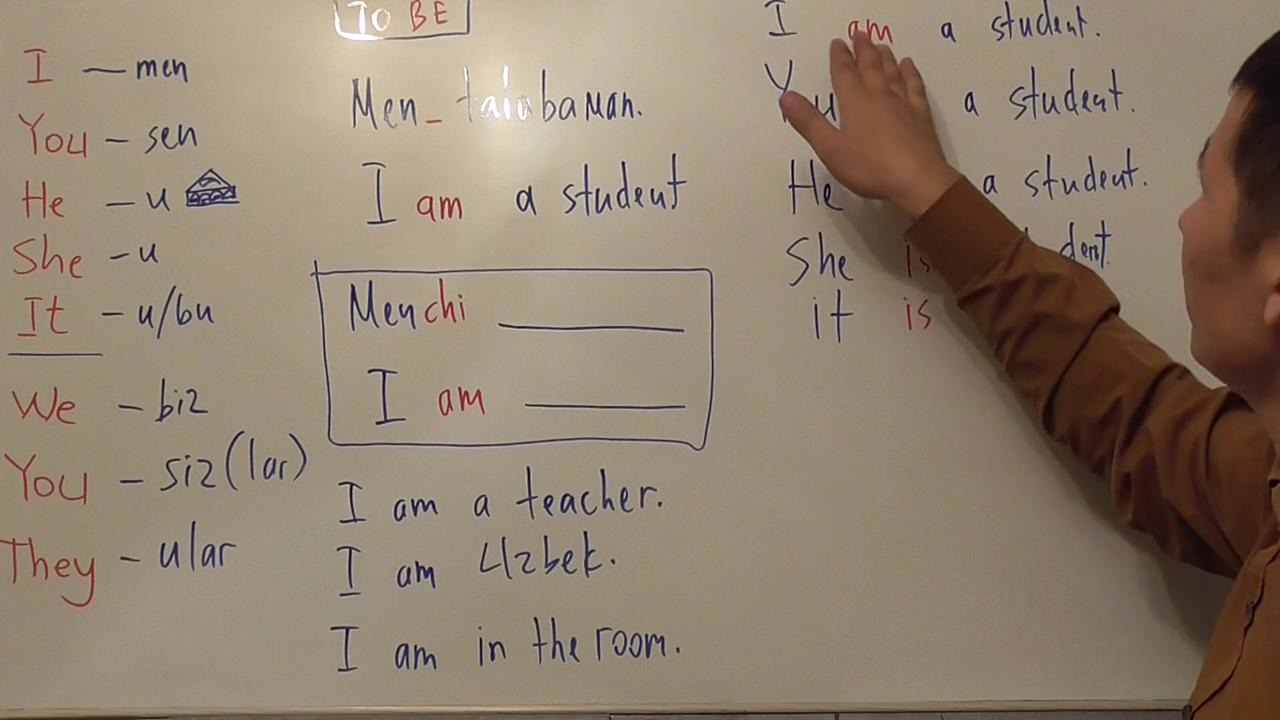 I — men
You – sen
He – u
She – u
It – u/bu
We – biz
You – siz(lar)
They – ular
TO BE
Men_ talabaman.
I am a student
Menchi
I am
I am a teacher.
I am Uzbek.
I am in the room.
I am a student.
a student.
He a student.
She is
it is